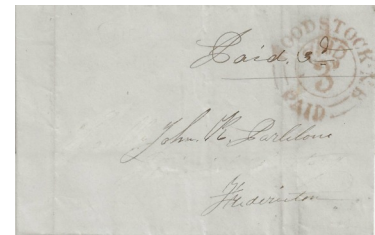 Paid. 3d
WOODSTOCK. N.B
3
PAID
John R. Parklow
Fredericton